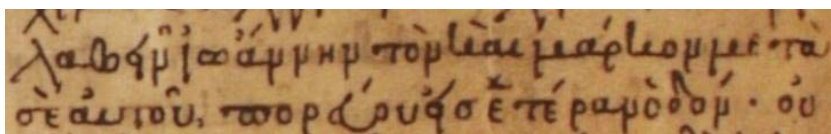 λαβεῖν ἰωάννην τὸν καὶ μάρκον μετὰ
σὲαυτοῦ, πορεύου εἰσ ἑτέραν ὁδόν · οὐ